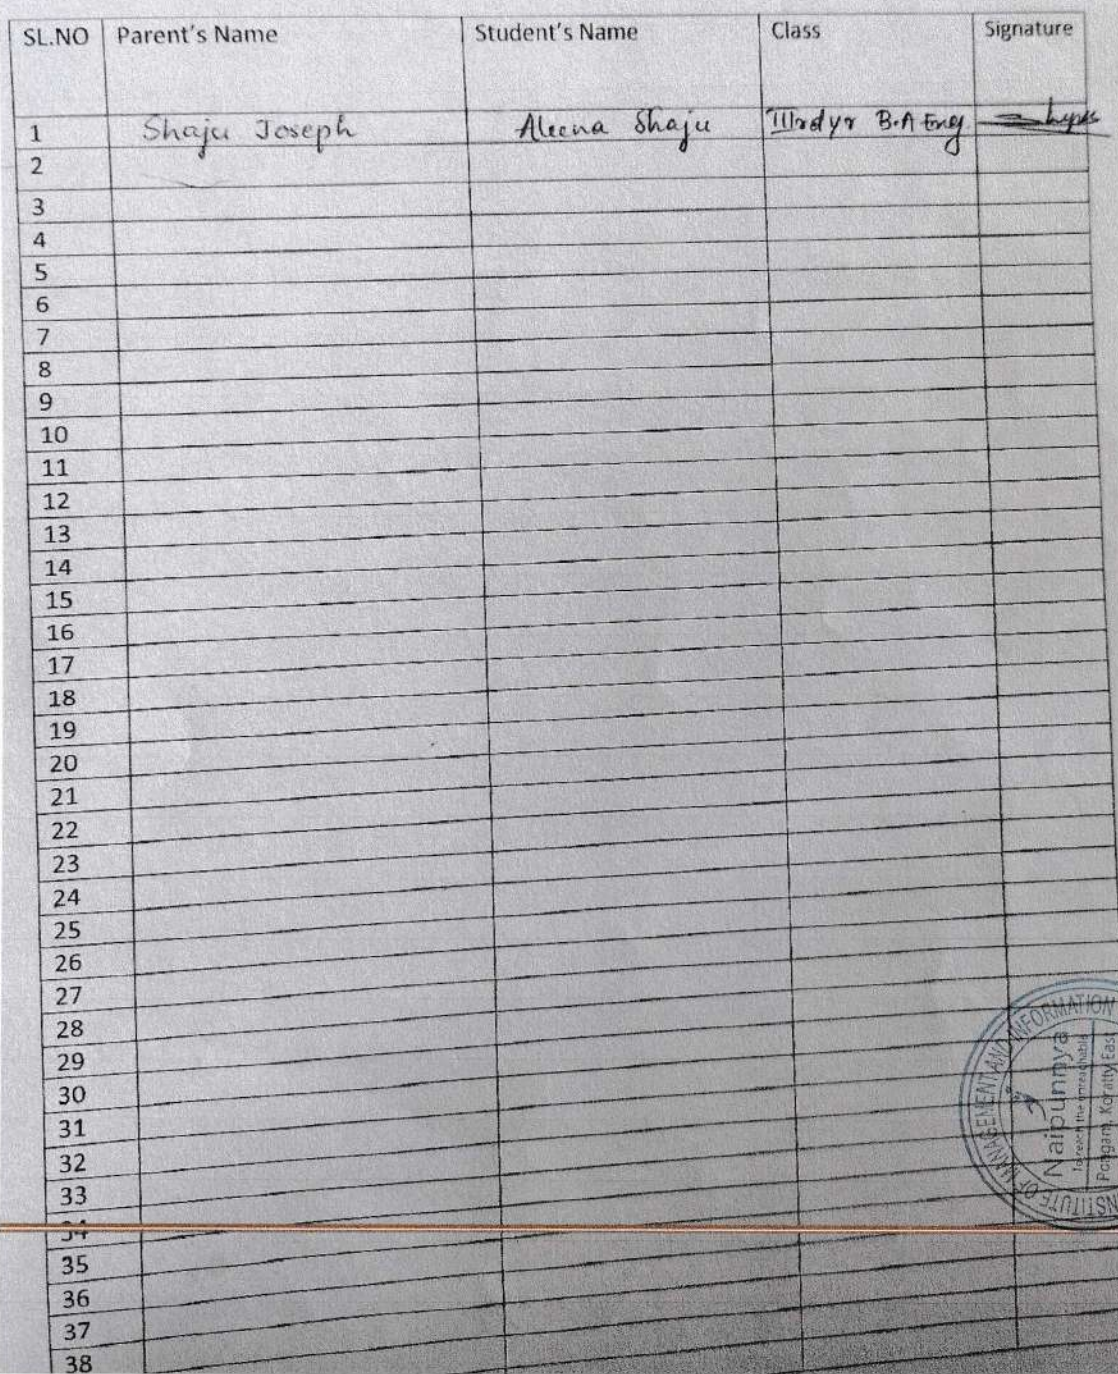 SL.NO Parent's Name Student's Name Class Signature
1 Shaju Joseph Aleena Shaju IIIrd yr B.A Eng
2
3
4
5
6
7
8
9
10
11
12
13
14
15
16
17
18
19
20
21
22
23
24
25
26
27
28
29
30
31
32
33
34
35
36
37
38
INSTITUTE OF MANAGEMENT AND INFORMATION
Naipunnya
To reach the unreachable
Pongam, Koratty East